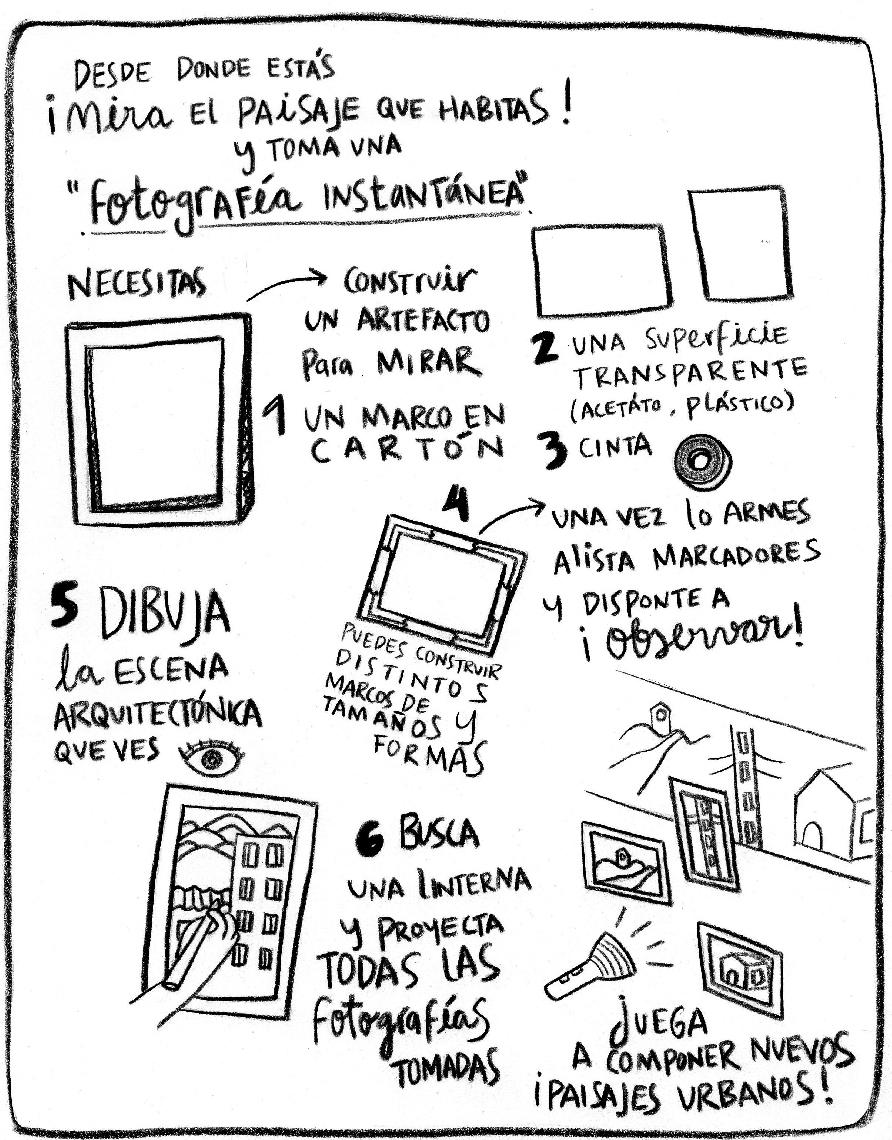 DESDE DONDE ESTÁS
¡Mira EL PAISAJE QUE HABITAS!
y TOMA UNA
"fotografía INSTANTÁNEA"
NECESITAS
CONSTRUIR
UN ARTEFACTO
Para MIRAR
1 UN MARCO EN
CARTÓN
2 UNA SUPERFICIE
TRANSPARENTE
(ACETÁTO, PLÁSTICO)
3 CINTA
4
UNA VEZ LO ARMES
ALISTA MARCADORES
Y DISPONTE A
¡observar!
PUEDES CONSTRUIR
DISTINTOS
MARCOS DE
TAMAÑOS Y
FORMAS
5 DIBUJA
la ESCENA
ARQUITECTÓNICA
QUE VES
6 BUSCA
UNA LINTERNA
Y PROYECTA
TODAS LAS
fotografías
TOMADAS
JUEGA
A COMPONER NUEVOS
¡PAISAJES URBANOS!